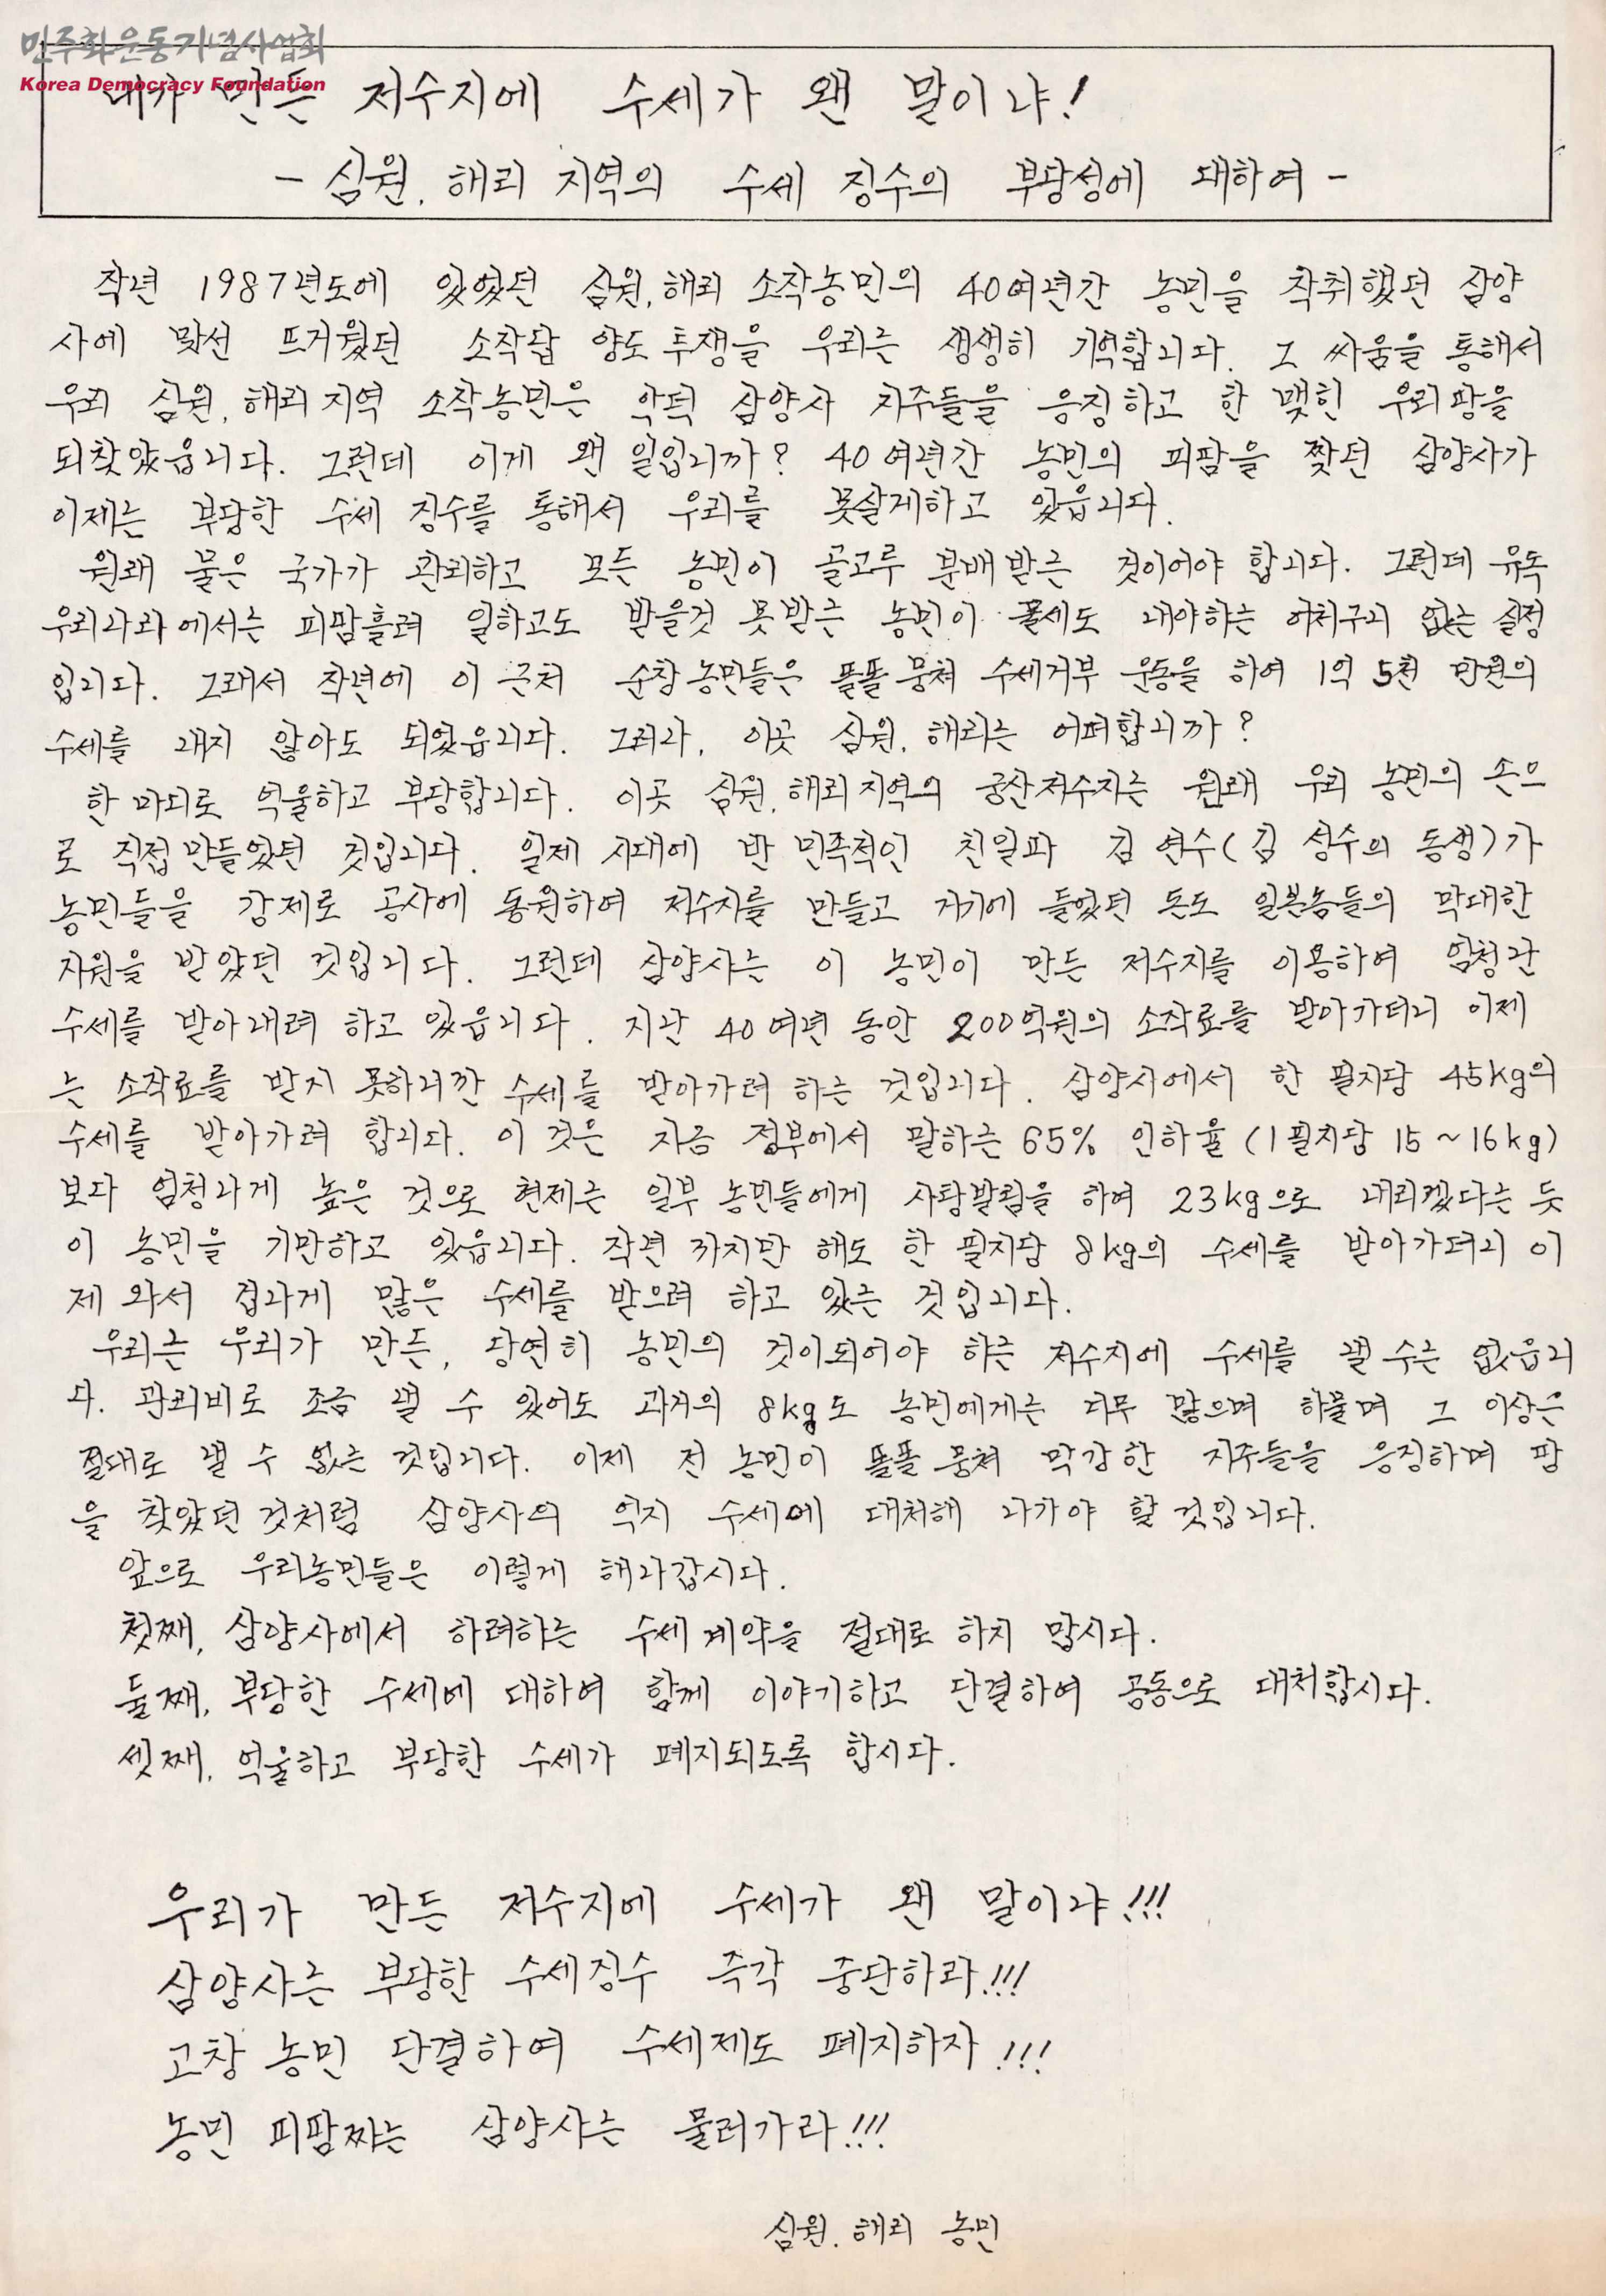 민주화운동기념사업회
Korea Democracy Foundation
내가 만든 저수지에 수세가 왠 말이냐!
- 심원. 해리 지역의 수세 징수의 부당성에 대하여 -
작년 1987년도에 있었던 심원.해리 소작농민의 40여년간 농민을 착취했던 삼양
사에 맞선 뜨거웠던 소작답 양도 투쟁을 우리는 생생히 기억합니다. 그 싸움을 통해서
우리 심원.해리 지역 소작농민은 악덕 삼양사 지주들을 응징하고 한 맺힌 우리 땅을
되찾았읍니다. 그런데 이게 왠 일입니까? 40여년간 농민의 피땀을 짲던 삼양사가
이제는 부당한 수세 징수를 통해서 우리를 못살게하고 있읍니다.
원래 물은 국가가 관리하고 모든 농민이 골고루 분배받는 것이어야 합니다. 그런데 유독
우리나라에서는 피땀흘려 일하고도 받을것 못받는 농민이 물세도 내야하는 어처구니 없는 실정
입니다. 그래서 작년에 이 근처 순창농민들은 똘똘 뭉쳐 수세거부 운동을 하여 1억 5천 만원의
수세를 내지 않아도 되었읍니다. 그러나, 이곳 심원. 해리는 어떠합니까?
한 마디로 억울하고 부당합니다. 이곳 심원.해리 지역의 궁산저수지는 원래 우리 농민의 손으
로 직접 만들었던 것입니다. 일제 시대에 반 민족적인 친일파 김 연수(김 성수의 동생)가
농민들을 강제로 공사에 동원하여 저수지를 만들고 거기에 들었던 돈도 일본놈들의 막대한
지원을 받았던 것입니다. 그런데 삼양사는 이 농민이 만든 저수지를 이용하여 엄청난
수세를 받아내려 하고 있읍니다. 지난 40여년 동안 200억원의 소작료를 받아가더니 이제
는 소작료를 받지 못하니깐 수세를 받아가려 하는 것입니다. 삼양사에서 한 필지당 45kg의
수세를 받아가려 합니다. 이 것은 지금 정부에서 말하는 65% 인하율 (1필지당 15~16kg)
보다 엄청나게 높은 것으로 현제는 일부 농민들에게 사탕발림을 하여 23kg으로 내리겠다는 듯
이 농민을 기만하고 있읍니다. 작년 까지만 해도 한 필지당 8kg의 수세를 받아가더니 이
제 와서 겁나게 많은 수세를 받으려 하고 있는 것입니다.
우리는 우리가 만든, 당연히 농민의 것이되어야 하는 저수지에 수세를 낼 수는 없읍니
다. 관리비로 조금 낼 수 있어도 과거의 8kg도 농민에게는 너무 많으며 하물며 그 이상은
절대로 낼 수 없는 것입니다. 이제 전 농민이 똘똘 뭉쳐 막강한 지주들을 응징하며 땅
을 찾았던 것처럼 삼양사의 억지 수세에 대처해 나가야 할 것입니다.
앞으로 우리농민들은 이렇게 해나갑시다.
첫째, 삼양사에서 하려하는 수세 계약을 절대로 하지 맙시다.
둘째, 부당한 수세에 대하여 함께 이야기하고 단결하여 공동으로 대처합시다.
셋째, 억울하고 부당한 수세가 폐지되도록 합시다.
우리가 만든 저수지에 수세가 왠 말이냐!!!
삼양사는 부당한 수세징수 즉각 중단하라!!!
고창 농민 단결하여 수세제도 폐지하자!!!
농민 피땀짜는 삼양사는 물러가라!!!
심원. 해리 농민